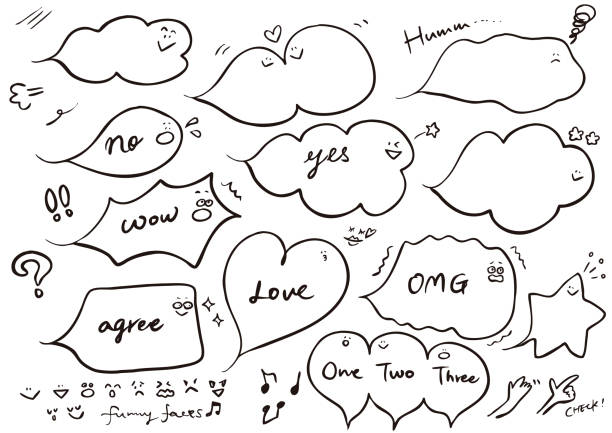 Humm.....
no
yes
wow
Love
OMG
agree
One Two Three
funny faces
CHECK!